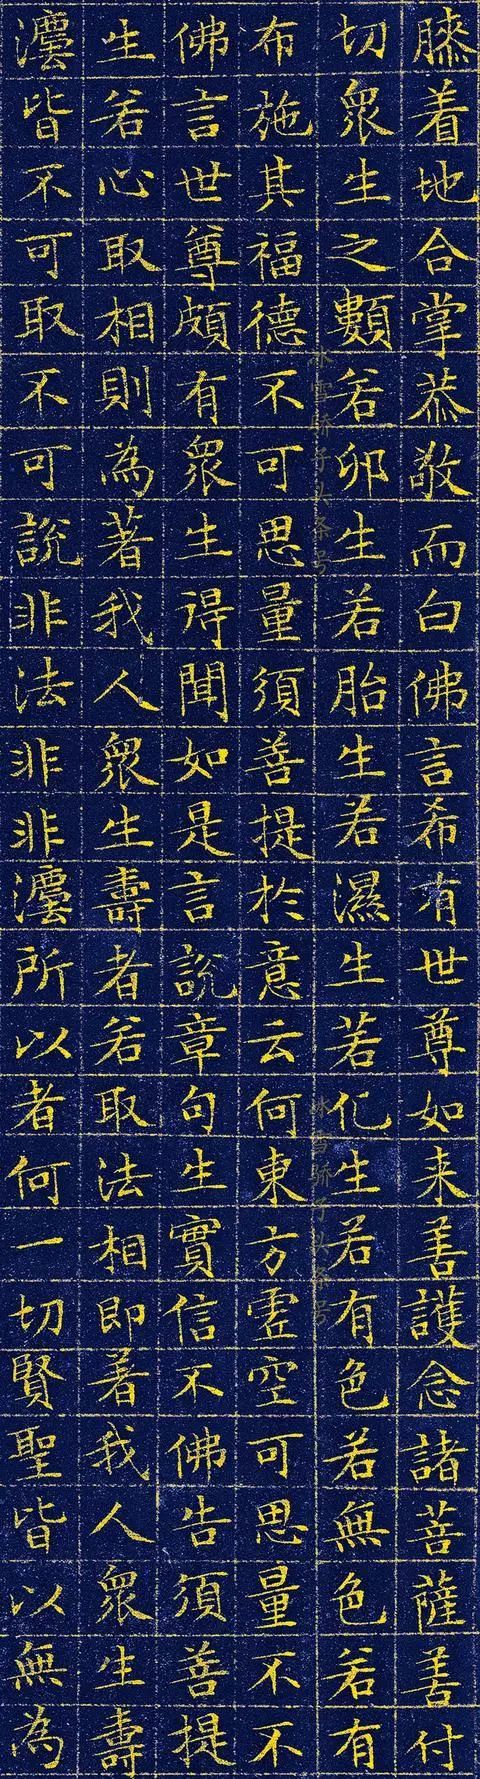 膝着地合掌恭敬而白佛言希有世尊如来善護念諸菩薩善付
切衆生之類若卵生若胎生若濕生若化生若有色若無色若有
布施其福德不可思量須善提於意云何東方虛空可思量不不
佛言世尊頗有衆生得聞如是言說章句生實信不佛告須善提
生若心取相則為著我人衆生壽者若取法相即著我人衆生壽
灋皆不可取不可說非法非非灋所以者何一切賢聖皆以無為
冰雪骄子头条号
冰雪骄子头条号